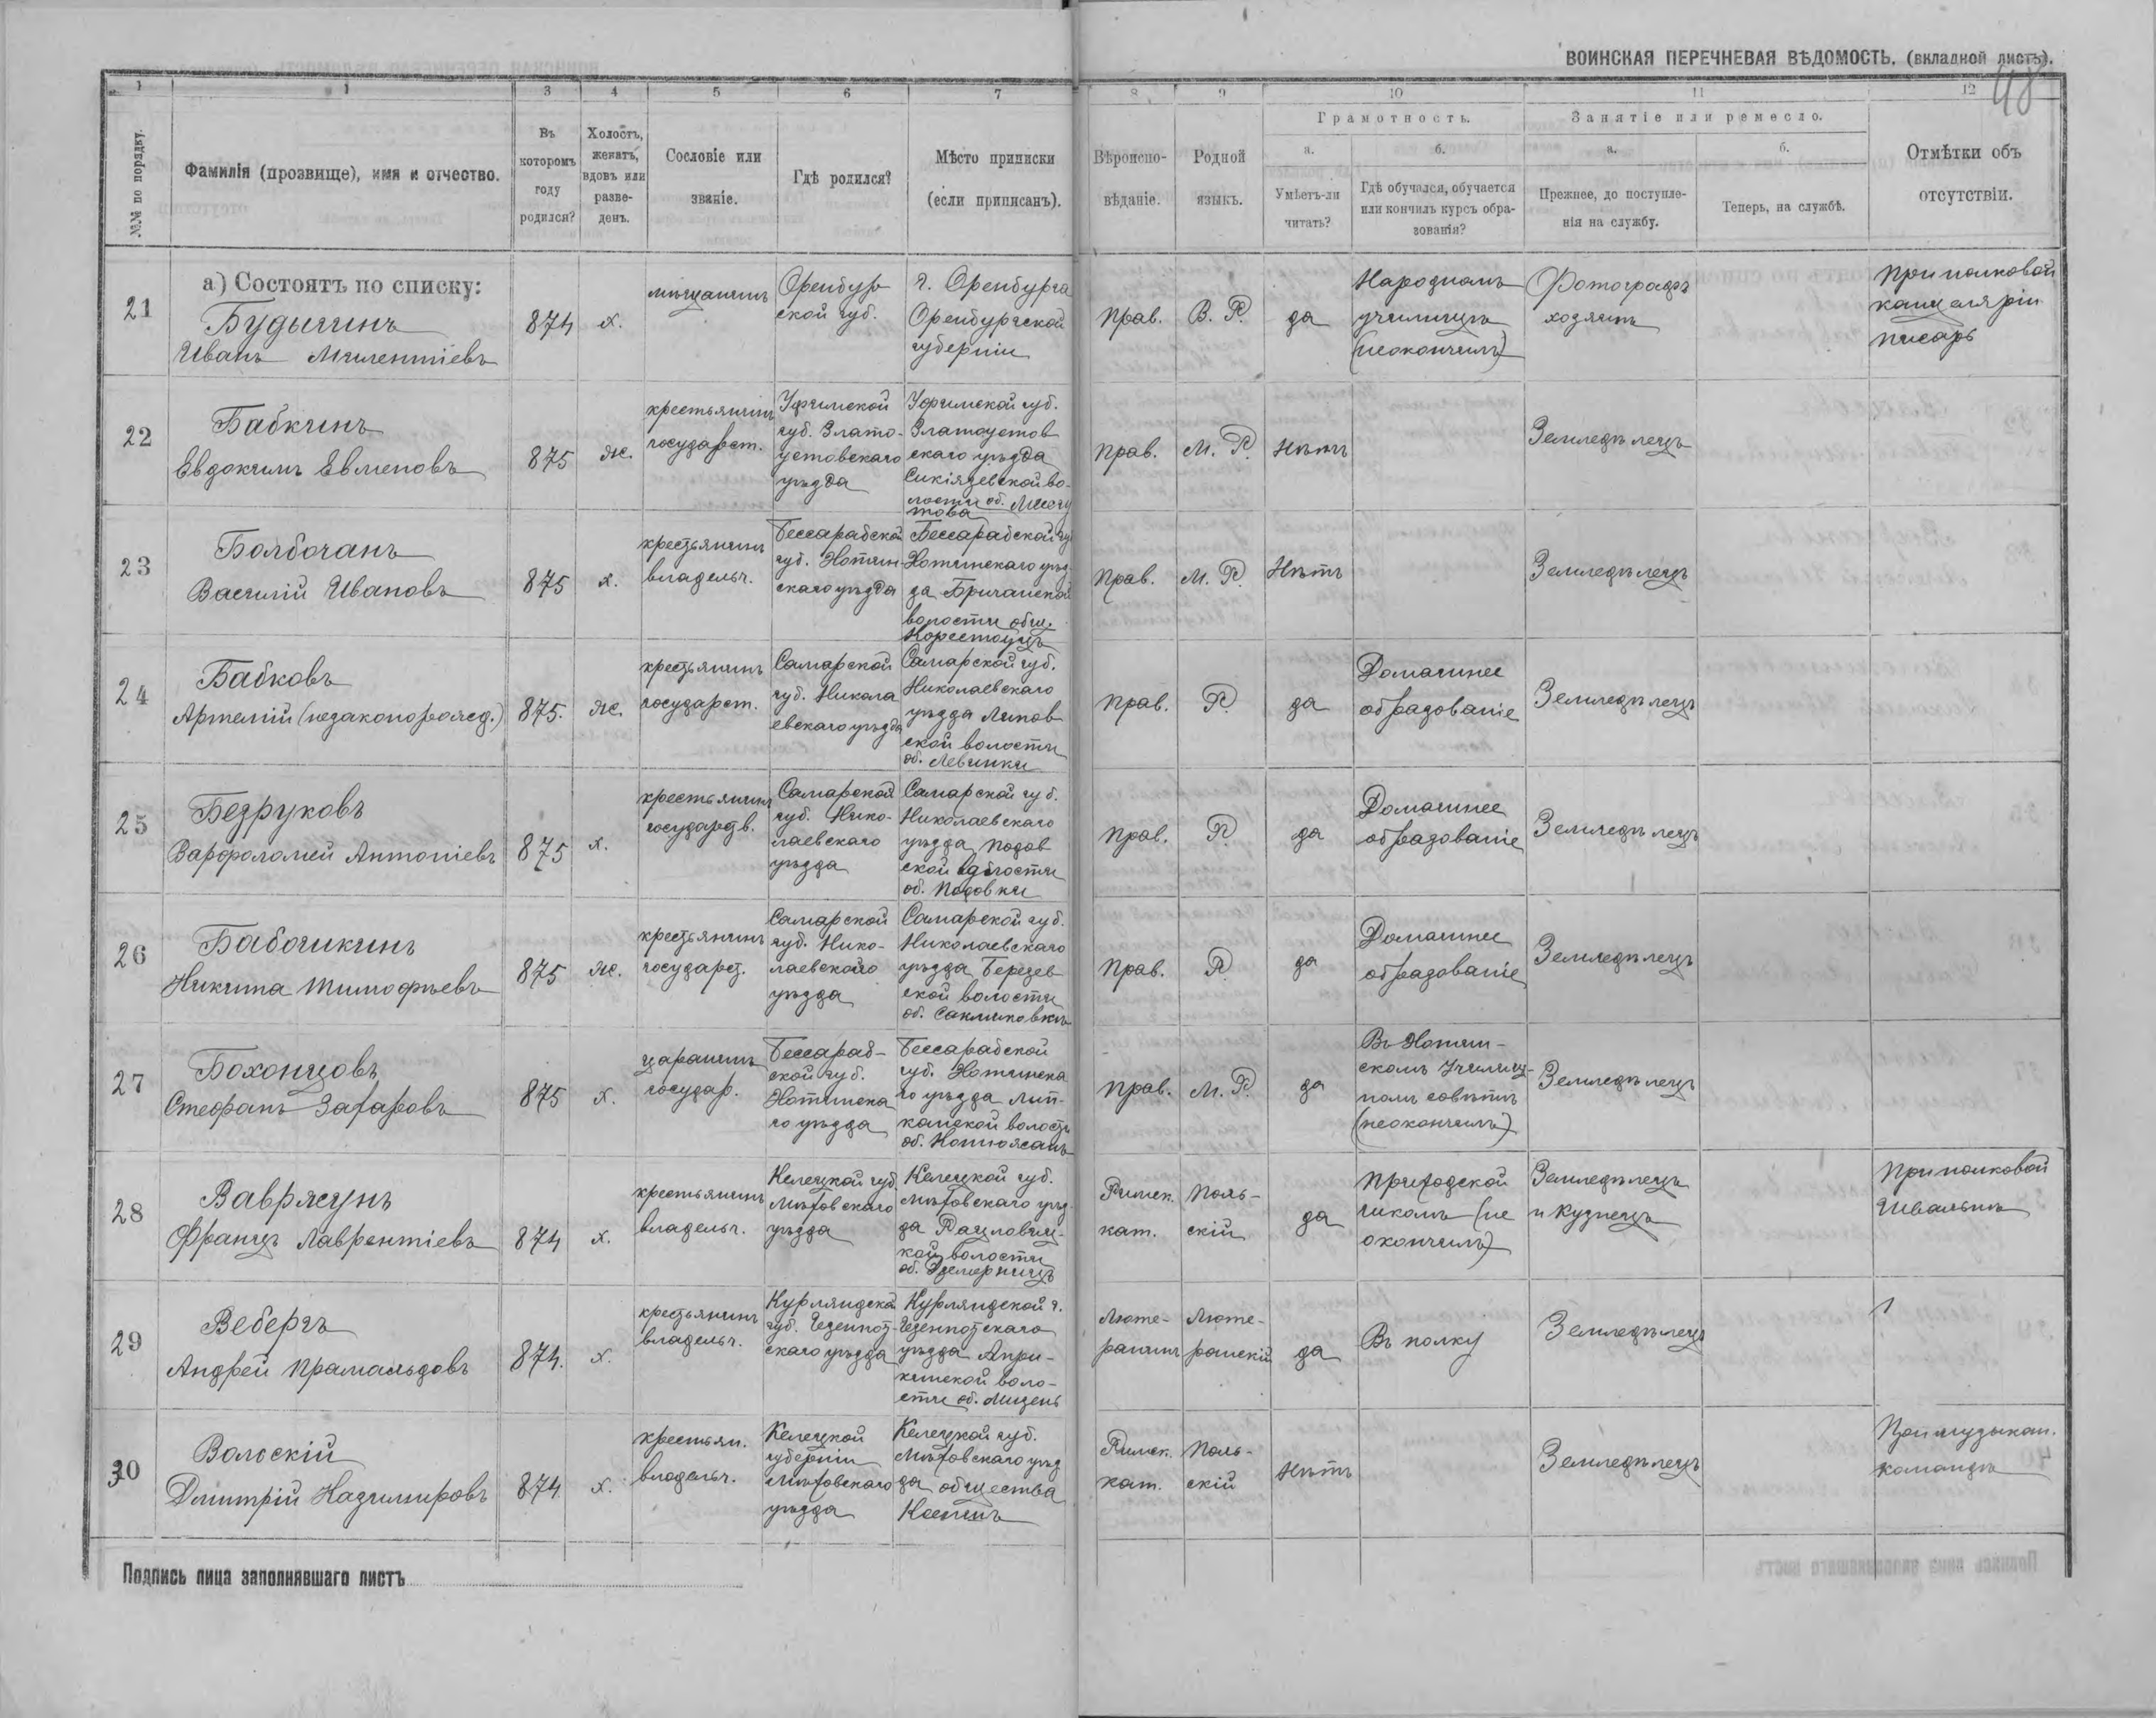 ВОИНСКАЯ ПЕРЕЧНЕВАЯ ВѢДОМОСТЬ. (вкладной листъ).
48
1 1 3 4 5 6 7 8 9 10 11 12
№№ по порядку.
Фамилія (прозвище), имя и отчество.
Въ
которомъ
году
родился?
Холостъ,
женатъ,
вдовъ или
разве-
денъ.
Сословіе или
званіе.
Гдѣ родился?
Мѣсто приписки
(если приписанъ).
Вѣроиспо-
вѣданіе.
Родной
языкъ.
Грамотность.
а.
Умѣетъ-ли
читать?
б.
Гдѣ обучался, обучается
или кончилъ курсъ обра-
зованія?
Занятіе или ремесло.
а.
Прежнее, до поступле-
нія на службу.
б.
Теперь, на службѣ.
Отмѣтки объ
отсутствіи.
а) Состоятъ по списку:
21
Будылинъ
Иванъ Милентіевъ
874
х.
мѣщанинъ
Оренбург
ской губ.
г. Оренбурга
Оренбургской
губерніи
Прав.
В. Р.
да
Народномъ
училищѣ
(неокончилъ)
Фотографъ
хозяинъ
При полковой
канцеляріи
писарь
22
Бабкинъ
Евдокимъ Евменовъ
875
ж.
крестьянинъ
государст.
Уфимской
губ. Злато-
устовскаго
уѣзда
Уфимской губ.
Златоустов
скаго уѣзда
Сикіязевской во-
лости об.
Прав.
М. Р.
Нѣтъ
Земледѣлецъ
23
Болбочанъ
Василій Ивановъ
875
х.
крестьянинъ
владельч.
Бессарабской
губ. Хотин
скаго уѣзда
Бессарабской гу
Хотинскаго уѣз
да Бричанской
волости общ.
Корестоуцъ
Прав.
М. Р.
Нѣтъ
Земледѣлецъ
24
Бабковъ
Артемій (незаконорожд.)
875.
ж.
крестьянинъ
государст.
Самарской
губ. Никола
евскаго уѣзда
Самарской губ.
Николаевскаго
уѣзда Липов
ской волости
об. Левинки
Прав.
Р.
да
Домашнее
образованіе
Земледѣлецъ
25
Безруковъ
Варфоломей Антоніевъ
875
х.
крестьянинъ
государств.
Самарской
губ. Нико-
лаевскаго
уѣзда
Самарской губ.
Николаевскаго
уѣзда Подов
ской волости
об. Подовки
Прав.
Р.
да
Домашнее
образованіе
Земледѣлецъ
26
Бабочкинъ
Никита Тимофѣевъ
875
ж.
крестьянинъ
государст.
Самарской
губ. Нико-
лаевскаго
уѣзда
Самарской губ.
Николаевскаго
уѣзда Березев
ской волости
об.
Прав.
Р.
да
Домашнее
образованіе
Земледѣлецъ
27
Бохонцовъ
Стефанъ Захаровъ
875
х.
царанинъ
государ.
Бессараб-
ской губ.
Хотинска
го уѣзда
Бессарабской
губ. Хотинска
го уѣзда Лип-
канской волости
об.
Прав.
М. Р.
да
Въ Хотин-
скомъ Училищ-
номъ совѣтѣ
(неокончилъ)
Земледѣлецъ
28
Вавржунъ
Францъ Лаврентіевъ
874
х.
крестьянинъ
владельч.
Келецкой губ
Мѣховскаго
уѣзда
Келецкой губ.
Мѣховскаго уѣз
да Рацлавиц-
кой волости
об.
Римск.
кат.
Поль-
скій
да
Приходской
школѣ (не
окончилъ)
Земледѣлецъ
и кузнецъ
При полковой
Швальнѣ
29
Вебергъ
Андрей
874.
х.
крестьянинъ
владельч.
Курляндской
губ. Газенпот-
скаго уѣзда
Курляндской г.
Газенпотскаго
уѣзда Апри-
кинской воло-
сти об.
Люте-
ранинъ
Люте-
ранскій
да
Въ полку
Земледѣлецъ
30
Вольскій
Дмитрій Казимировъ
874
х.
крестьян.
владельч.
Келецкой
губерніи
Мѣховскаго
уѣзда
Келецкой губ.
Мѣховскаго уѣз
да общества
Римск.
кат.
Поль-
скій
Нѣтъ
Земледѣлецъ
При музыкан.
командѣ
Подпись лица заполнявшаго листъ